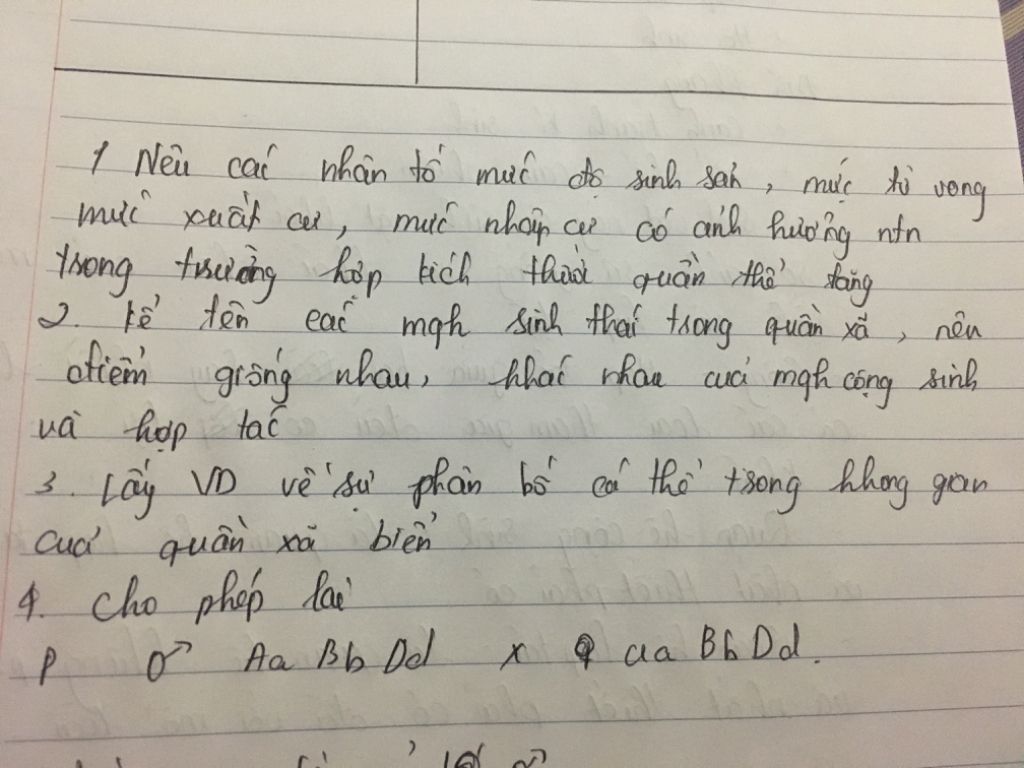 1 Nêu các nhân tố mức độ sinh sản, mức tử vong
mức xuất cư, mức nhập cư có ảnh hưởng ntn
trong trường hợp kích thước quần thể tăng
2. kể tên các mqh sinh thái trong quần xã, nêu
điểm giống nhau, khác nhau của mqh cộng sinh
và hợp tác
3. Lấy VD về sự phân bố cá thể trong không gian
của quần xã biển
4. Cho phép lai
P ♂ Aa Bb Dd x ♀ aa Bb Dd.